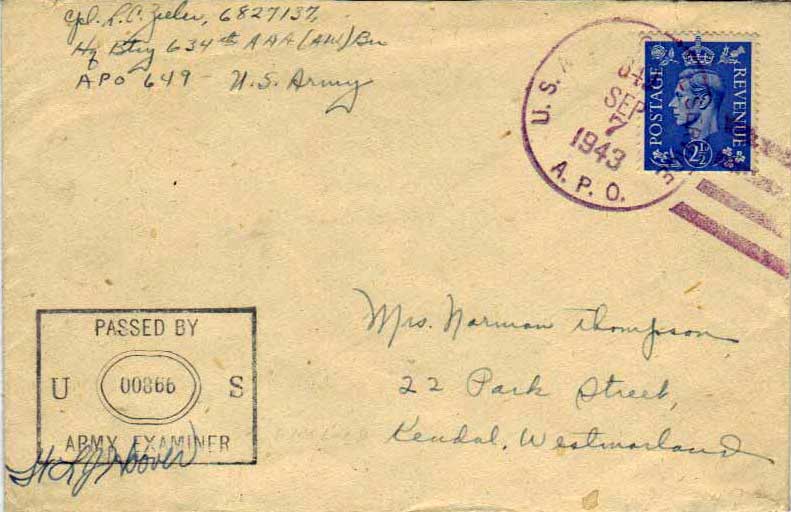 Cpl. L. C. Zieler, 6827137,
Hq Btry 634th AAA (AW) Bn
APO 649 - U.S. Army
U.S. A
SEP
7
1943
A. P. O.
POSTAGE
REVENUE
2½
PASSED BY
U 00866 S
ARMY EXAMINER
Hoover
Mrs. Norman Thompson,
22 Park Street,
Kendal, Westmorland